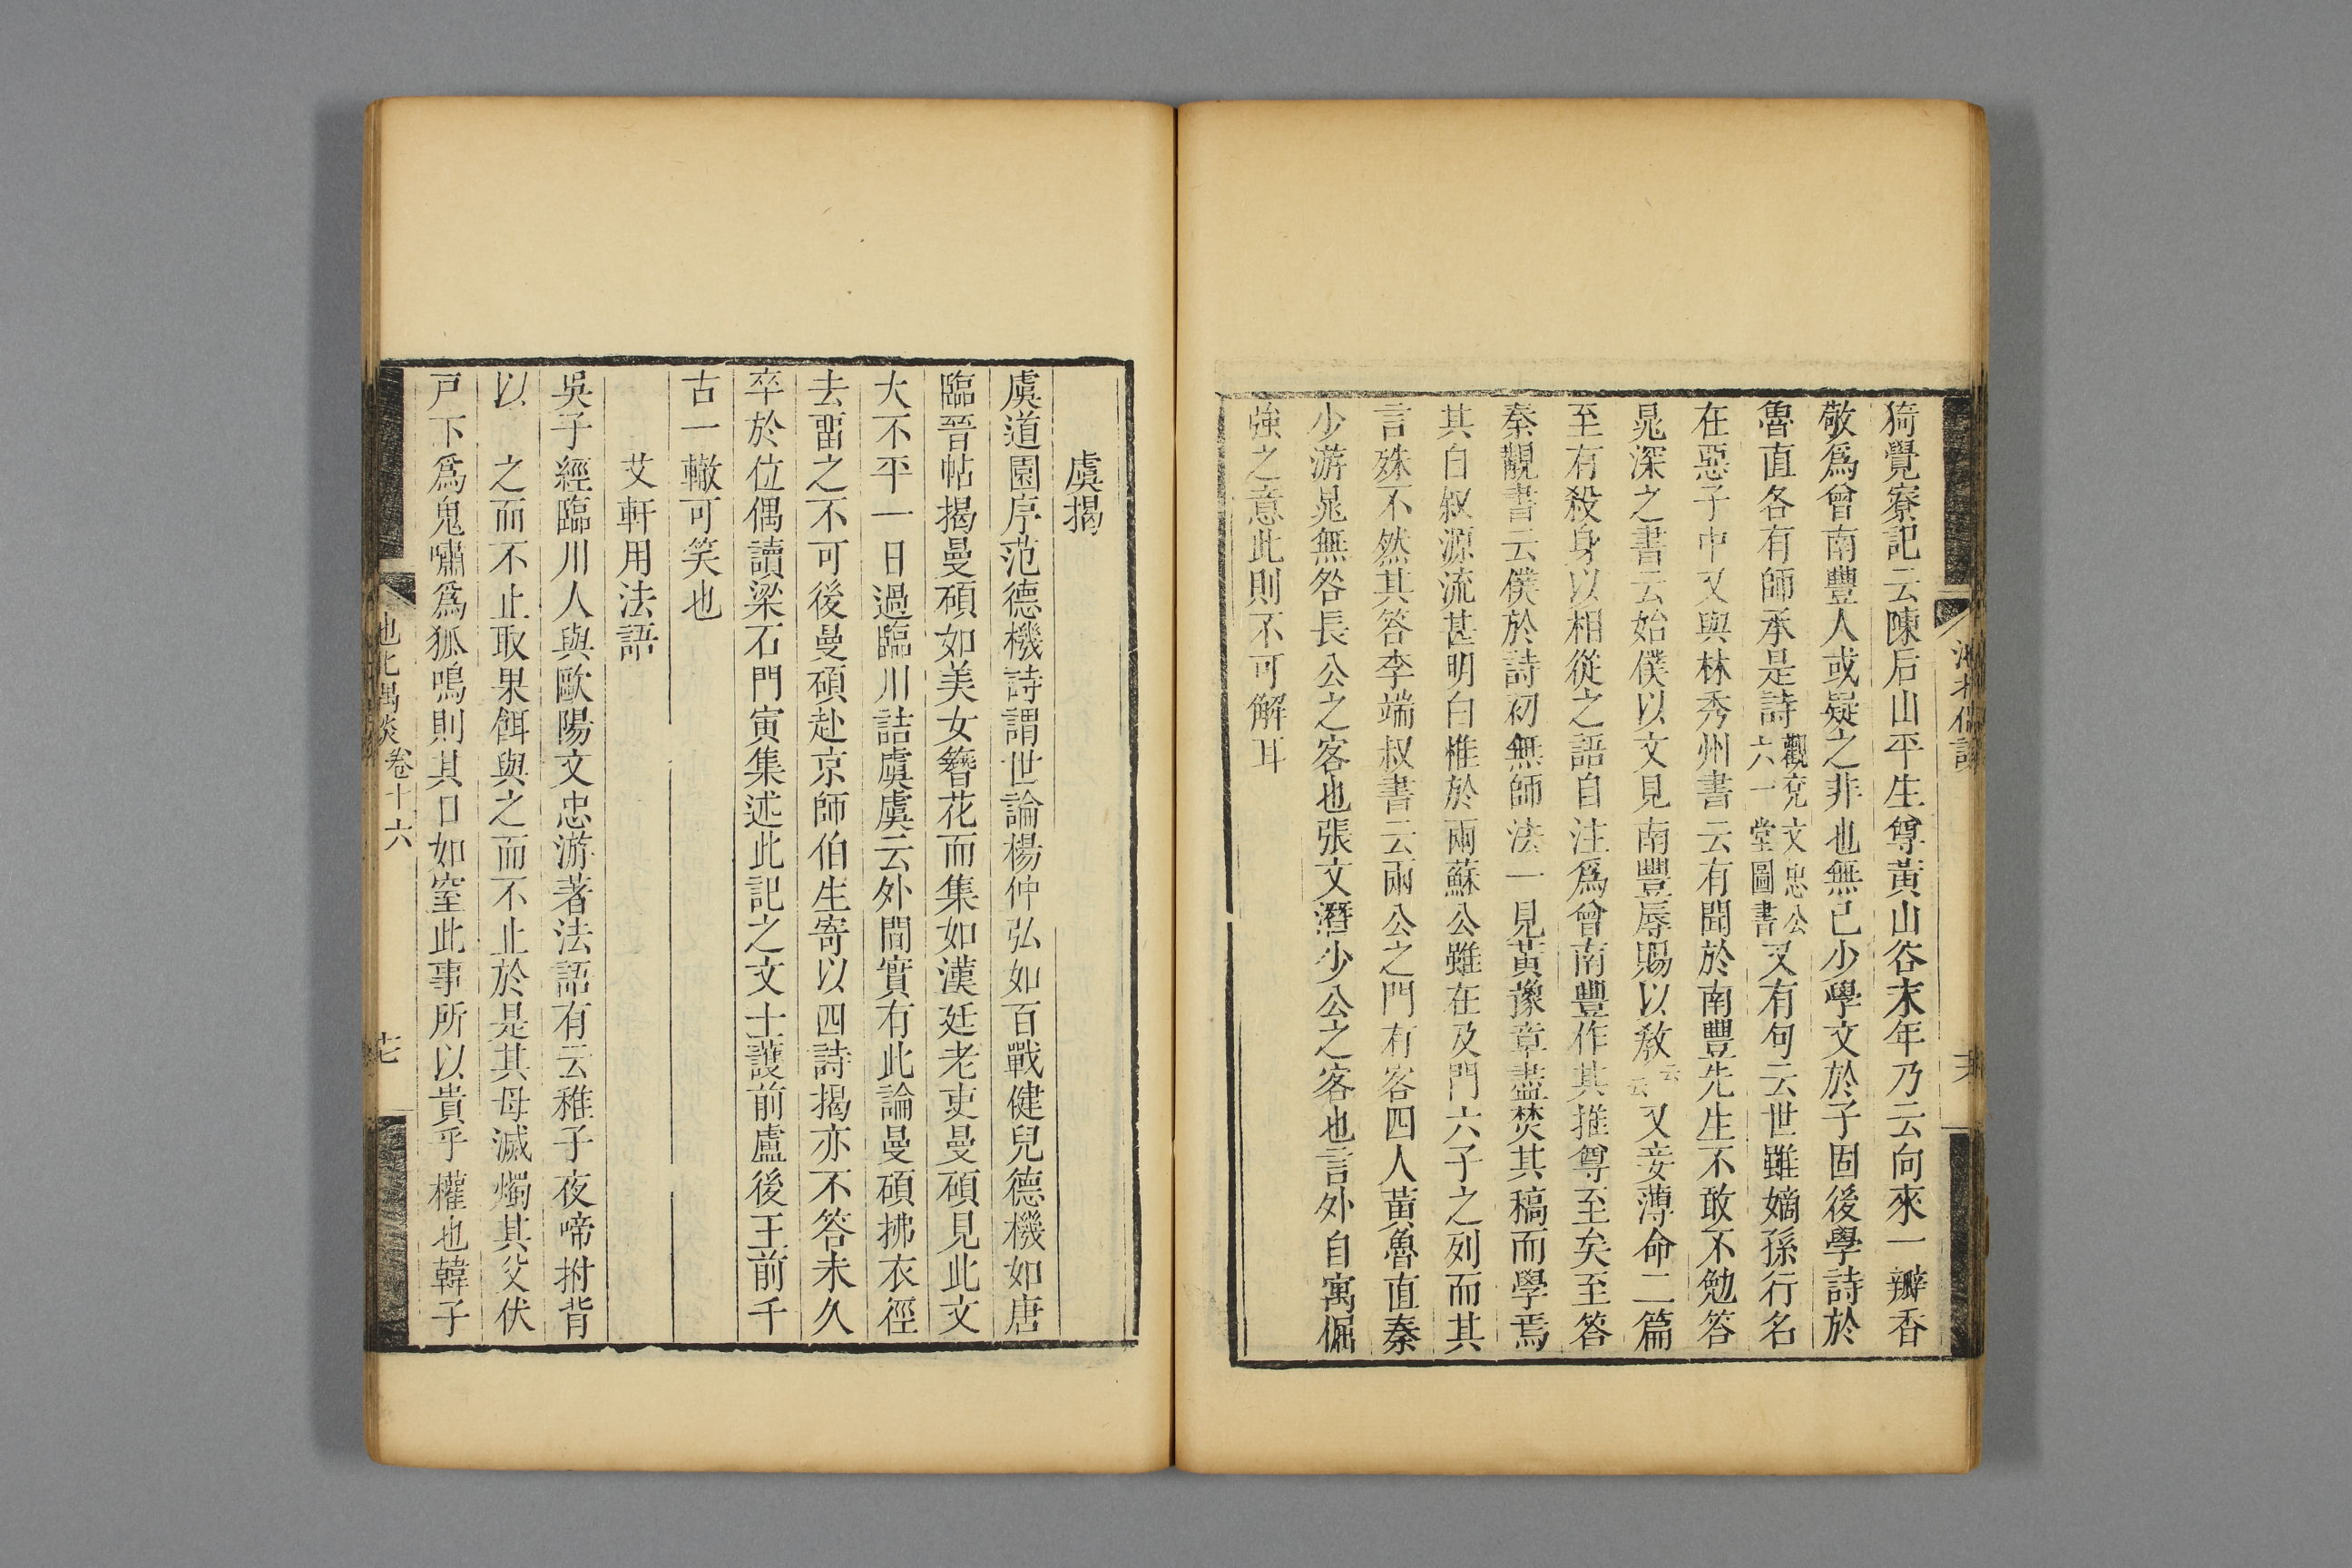 猗覺寮記云陳后山平生尊黃山谷末年乃云向來一瓣香
敬爲曾南豐人或疑之非也無已少學文於子固後學詩於
魯直各有師承是詩觀兗文忠公六一堂圖書又有句云世雖嫡孫行名
在惡子中又與林秀州書云有聞於南豐先生不敢不勉答
晁深之書云始僕以文見南豐辱賜以教云云又妾薄命二篇
至有殺身以相從之語自注爲曾南豐作其推尊至矣至答
秦觀書云僕於詩初無師法一見黃豫章盡焚其稿而學焉
其自叙源流甚明白惟於兩蘇公雖在及門六子之列而其
言殊不然其答李端叔書云兩公之門有客四人黃魯直秦
少游晁無咎長公之客也張文潛少公之客也言外自寓倔
強之意此則不可解耳
虞揭
虞道園序范德機詩謂世論楊仲弘如百戰健兒德機如唐
臨晉帖揭曼碩如美女簪花而集如漢廷老吏曼碩見此文
大不平一日過臨川詰虞虞云外間實有此論曼碩拂衣徑
去畱之不可後曼碩赴京師伯生寄以四詩揭亦不答未久
卒於位偶讀梁石門寅集述此記之文士護前盧後王前千
古一轍可笑也
艾軒用法語
吳子經臨川人與歐陽文忠游著法語有云稚子夜啼拊背
以 之而不止取果餌與之而不止於是其母滅燭其父伏
戶下爲鬼嘯爲狐鳴則其口如窒此事所以貴乎權也韓子
池北偶談 卷十六